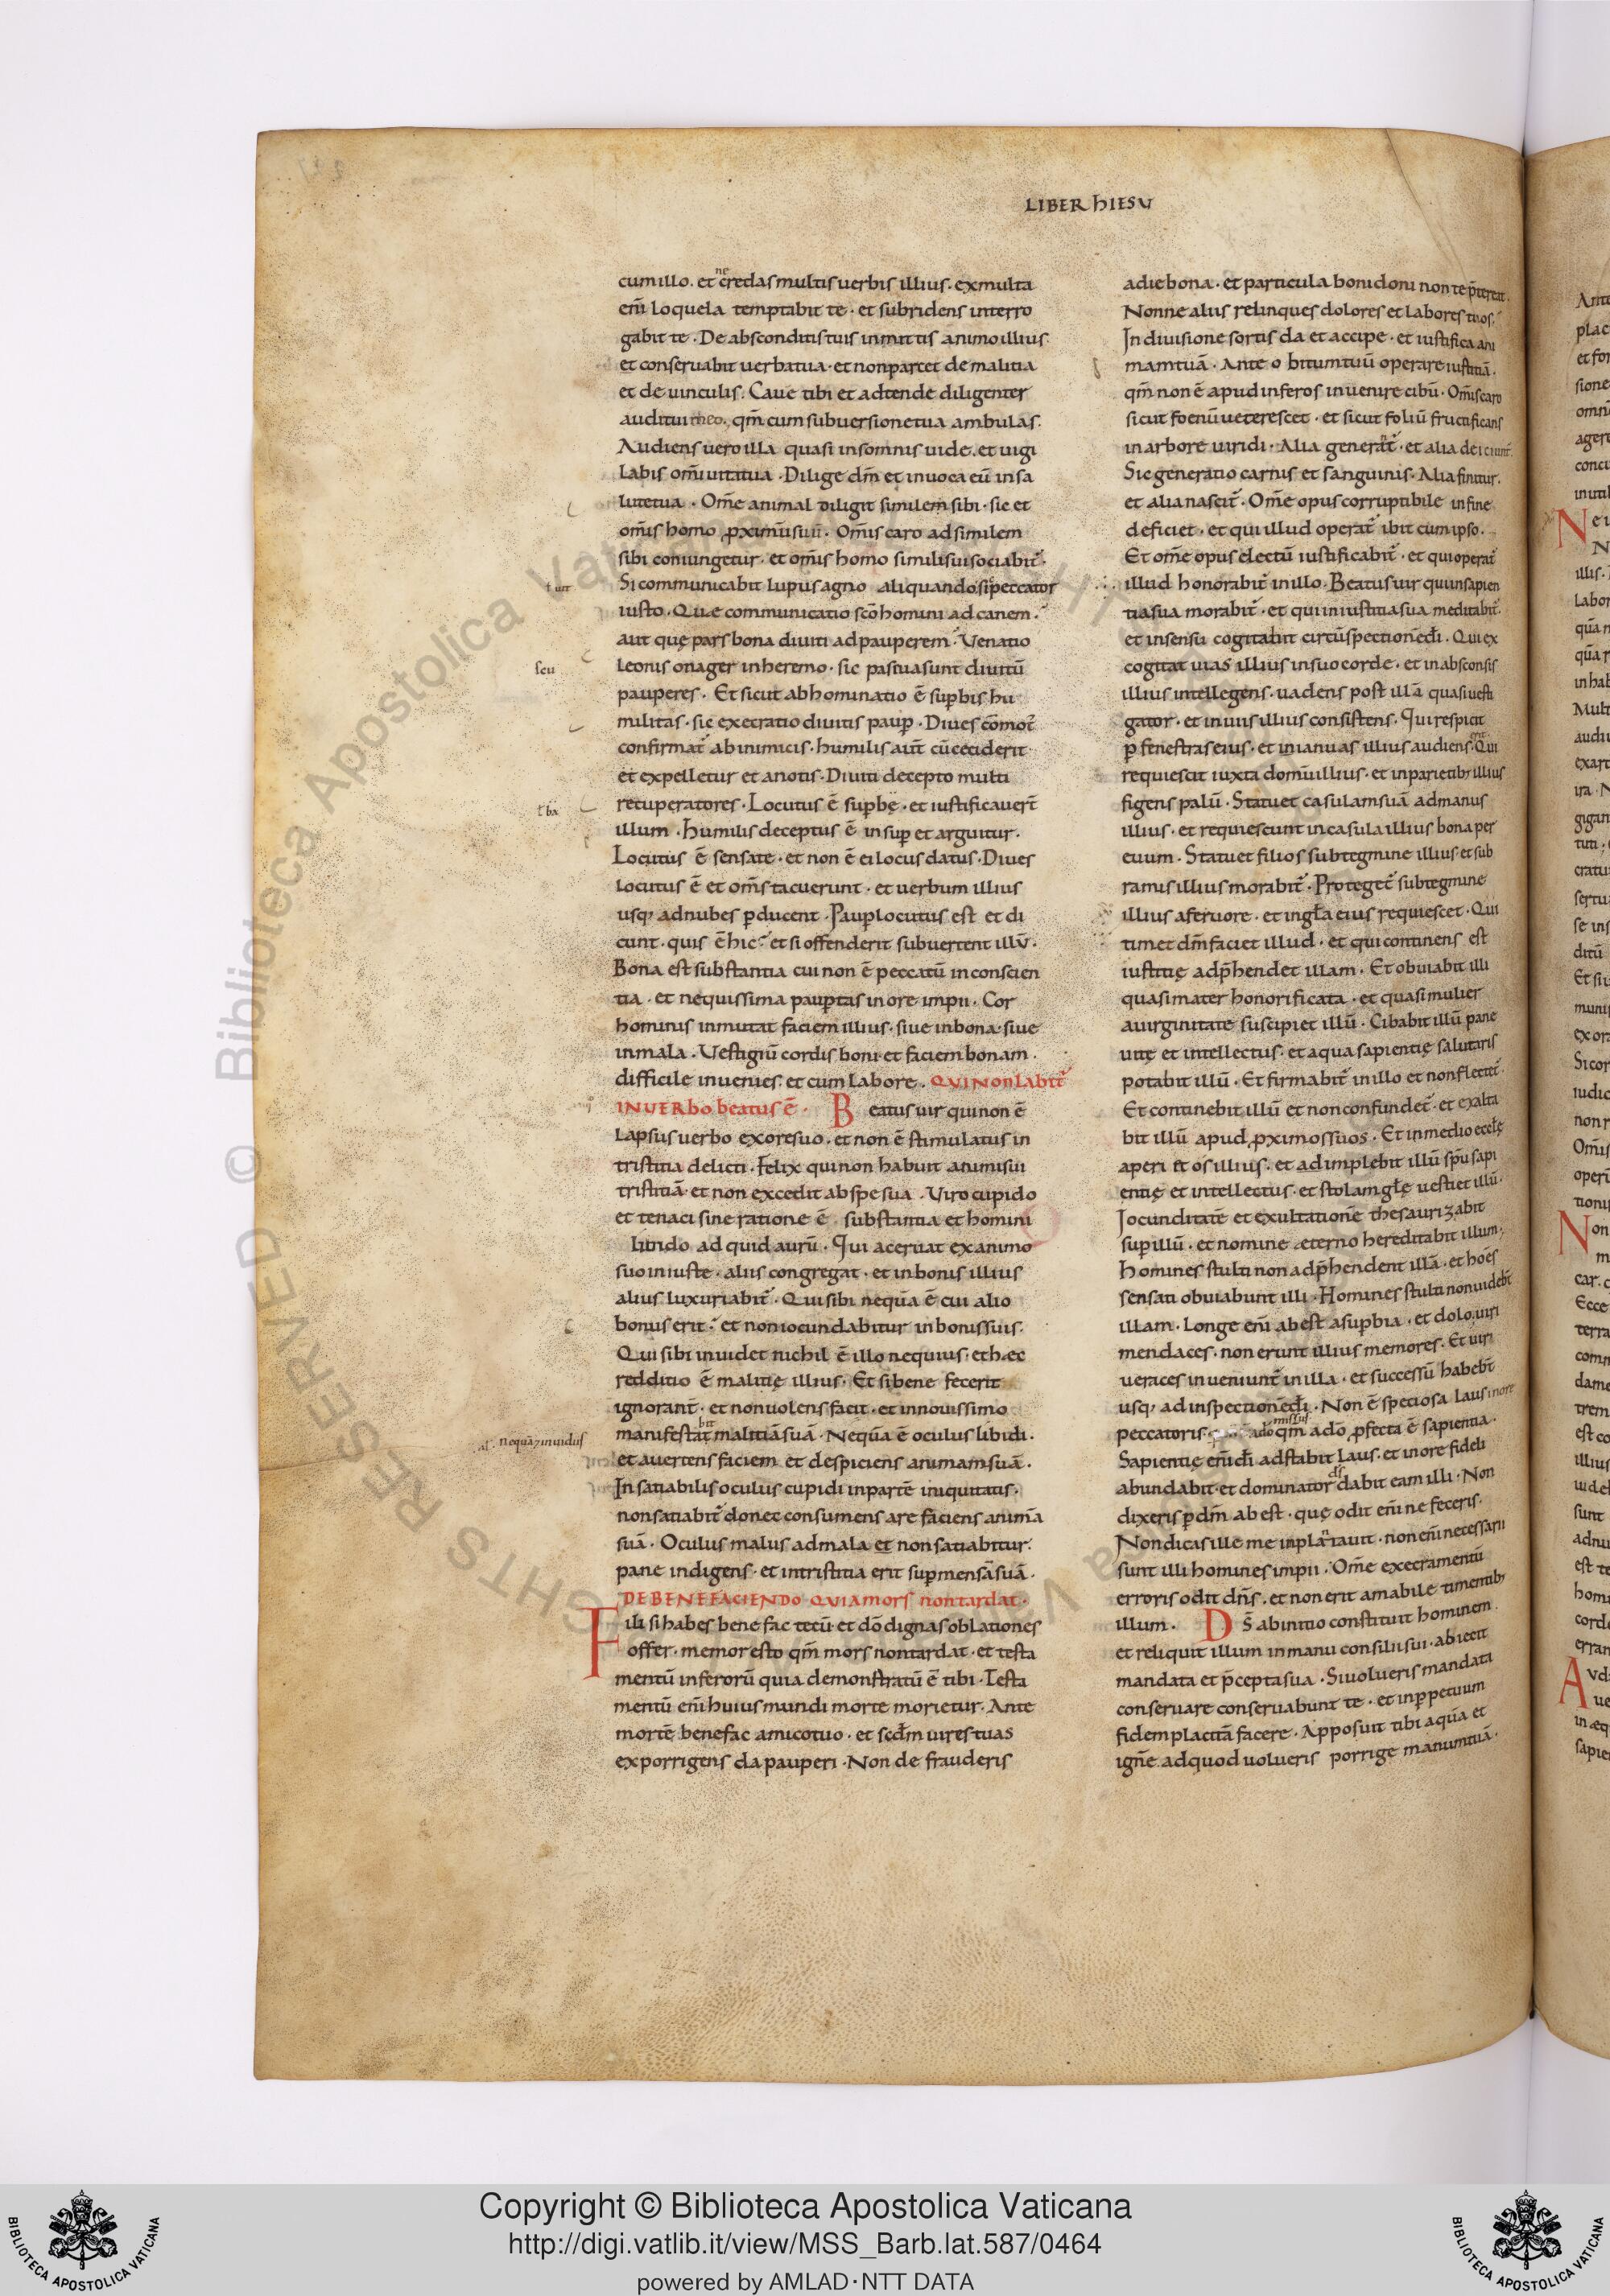 LIBER hIESV
cumillo. et ne credas multis uerbis illius. exmulta
em̄ loquela temptabit te. et subridens interro
gabit te. De absconditis tuis inmittis animo illius
et conseruabit uerba tua. et non parcet de malitia
et de uinculis. Caue tibi et adtende diligenter
auditui qm̄ cum subuersione tua ambulas.
Audiens uero illa quasi insomnis uide. et uigi
labis om̄i uita tua. Dilige dm̄ et inuoca eū in sa
lute tua. Om̄e animal diligit similem sibi. sic et
om̄is homo proximū suū. Om̄is caro ad similem
sibi coniungetur. et om̄is homo simili sui sociabit̄.
Si communicabit lupus agno aliquando. si peccator
iusto. Quae communicatio sc̄o homini ad canem.
aut quę pars bona diuiti ad pauperem. Venatio
seu
leonis onager in heremo. sic pascua sunt diuitū
pauperes. Et sicut abhominatio ē supbis hu
militas. sic execratio diuitis paup. Diues cōmot̄
confirmat̄ ab inimicis. humilis aūt cū ceciderit
et expelletur et a notis. Diuiti decepto multi
ł ba
recuperatores. Locutus ē supbę. et iustificauer̄t
illum. Humilis deceptus ē insup et arguitur.
Locutus ē sensate. et non ē ei locus datus. Diues
locutus ē et om̄s tacuerunt. et uerbum illius
usq; ad nubes pducent. Paup locutus est et di
cunt. quis ē hic. et si offenderit subuertent illū.
Bona est substantia cui non ē peccatū in conscien
tia. et nequissima pauptas in ore impii. Cor
hominis inmutat faciem illius. siue in bona siue
in mala. Vestigiū cordis boni et faciem bonam.
difficile inuenies. et cum labore. QVI NON Labit̄
IN VERbo beatus ē. Beatus uir qui non ē
lapsus uerbo ex ore suo. et non ē stimulatus in
tristitia delicti. Felix qui non habuit animi sui
tristitiā et non excedit ab spe sua. Viro cupido
et tenaci sine ratione ē substantia et homini
liuido ad quid aurū. Qui aceruat ex animo
suo iniuste. aliis congregat. et in bonis illius
alius luxuriabit̄. Qui sibi nequā ē cui alio
bonus erit. et non iocundabitur in bonis suis.
Qui sibi inuidet nichil ē illo nequius. et haec
redditio ē malitię illius. Et si bene fecerit
ignorant̄. et non uolens facit. et in nouissimo
bit
manifestat malitiā suā. Nequā ē oculus libidi.
al. nequā ⁊ inuidus
et auertens faciem et despiciens animam suā.
Insatiabilis oculus cupidi in partē iniquitatis.
non satiabit̄ donec consumens are faciens animā
suā. Oculus malus ad mala et non satiabitur.
pane indigens. et in tristitia erit sup mensā suā.
DE BENEFACIENDO QVIA MORS non tardat.
Fili si habes bene fac tecū et dō dignas oblationes
offer. memor esto qm̄ mors non tardat. et testa
mentū inferorū quia demonstratū ē tibi. Testa
mentū em̄ huius mundi morte morietur. Ante
mortē benefac amico tuo. et scdm uires tuas
exporrigens da pauperi. Non de frauderis
a die bona. et particula boni doni non te p̄tereat.
Nonne aliis relinques dolores et labores tuos.
In diuisione sortis da et accipe. et iustifica ani
mam tuā. Ante obitum tuū operare iustitiā.
qm̄ non ē apud inferos inuenire cibū. Om̄is caro
sicut foenū ueterescet. et sicut foliū fructificans
in arbore uiridi. Alia generat̄. et alia deiciunt̄.
Sic generatio carnis et sanguinis. Alia finitur.
et alia nascit̄. Om̄e opus corruptibile in fine
deficiet. et qui illud operat̄ ibit cum ipso.
Et om̄e opus electū iustificabit̄. et qui operat̄
illud honorabit̄ in illo. Beatus uir qui in sapien
tia sua morabit̄. et qui in iustitia sua meditabit̄.
et in sensu cogitabit circūspectionē di. Qui ex
cogitat uias illius in suo corde. et in absconsis
illius intellegens. uadens post illā quasi uesti
gator. et in uiis illius consistens. Qui respicit
p fenestras eius. et in ianuas illius audiens. Qui
requiescit iuxta domū illius. et in parietib; illius
figens palū. Statuet casulam suā ad manus
illius. et requiescunt in casula illius bona per
euum. Statuet filios sub tegmine illius. et sub
ramis illius morabit̄. Proteget̄ sub tegmine
illius a feruore. et in gła eius requiescet. Qui
timet dm̄ faciet illud. et qui continens est
iustitię adp̄hendet illam. Et obuiabit illi
quasi mater honorificata. et quasi mulier
a uirginitate suscipiet illū. Cibabit illū pane
uitę et intellectus. et aqua sapientię salutaris
potabit illū. Et firmabit̄ in illo et non flectet̄.
Et continebit illū et non confundet̄. et exalta
bit illū apud proximos suos. Et in medio eccłę
aperiet os illius. et adimplebit illū spū sapi
entię et intellectus. et stolam głę uestiet illū.
Jocunditatē et exultationē thesaurizabit
sup illū. et nomine aeterno hereditabit illum.
Homines stulti non adp̄hendent illā. et hōes
sensati obuiabunt illi. Homines stulti non uidebt̄
illam. Longe em̄ abest a supbia. et dolo. uiri
mendaces. non erunt illius memores. Et uiri
ueraces inueniunt̄ in illa. et successū habebt̄
usq; ad inspectionē di. Non ē speciosa laus in ore
missus
peccatoris. qm̄ a dō pfecta ē sapientia.
Sapientię em̄ di adstabit laus. et in ore fideli
ds
abundabit. et dominator dabit eam illi. Non
dixeris p dm̄ abest. quę odit em̄ ne feceris.
Non dicas ille me inplanauit. non em̄ necessarii
sunt illi homines impii. Om̄e execramentū
erroris odit dn̄s. et non erit amabile timentib;
illum. Ds ab initio constituit hominem.
et reliquit illum in manu consilii sui. abiecit
mandata et p̄cepta sua. Si uolueris mandata
conseruare conseruabunt te. et inppetuum
fidem placitā facere. Apposuit tibi aquā et
ignē. ad quod uolueris porrige manum tuā.
Copyright © Biblioteca Apostolica Vaticana
http://digi.vatlib.it/view/MSS_Barb.lat.587/0464
powered by AMLAD·NTT DATA
BIBLIOTECA APOSTOLICA VATICANA
BIBLIOTECA APOSTOLICA VATICANA